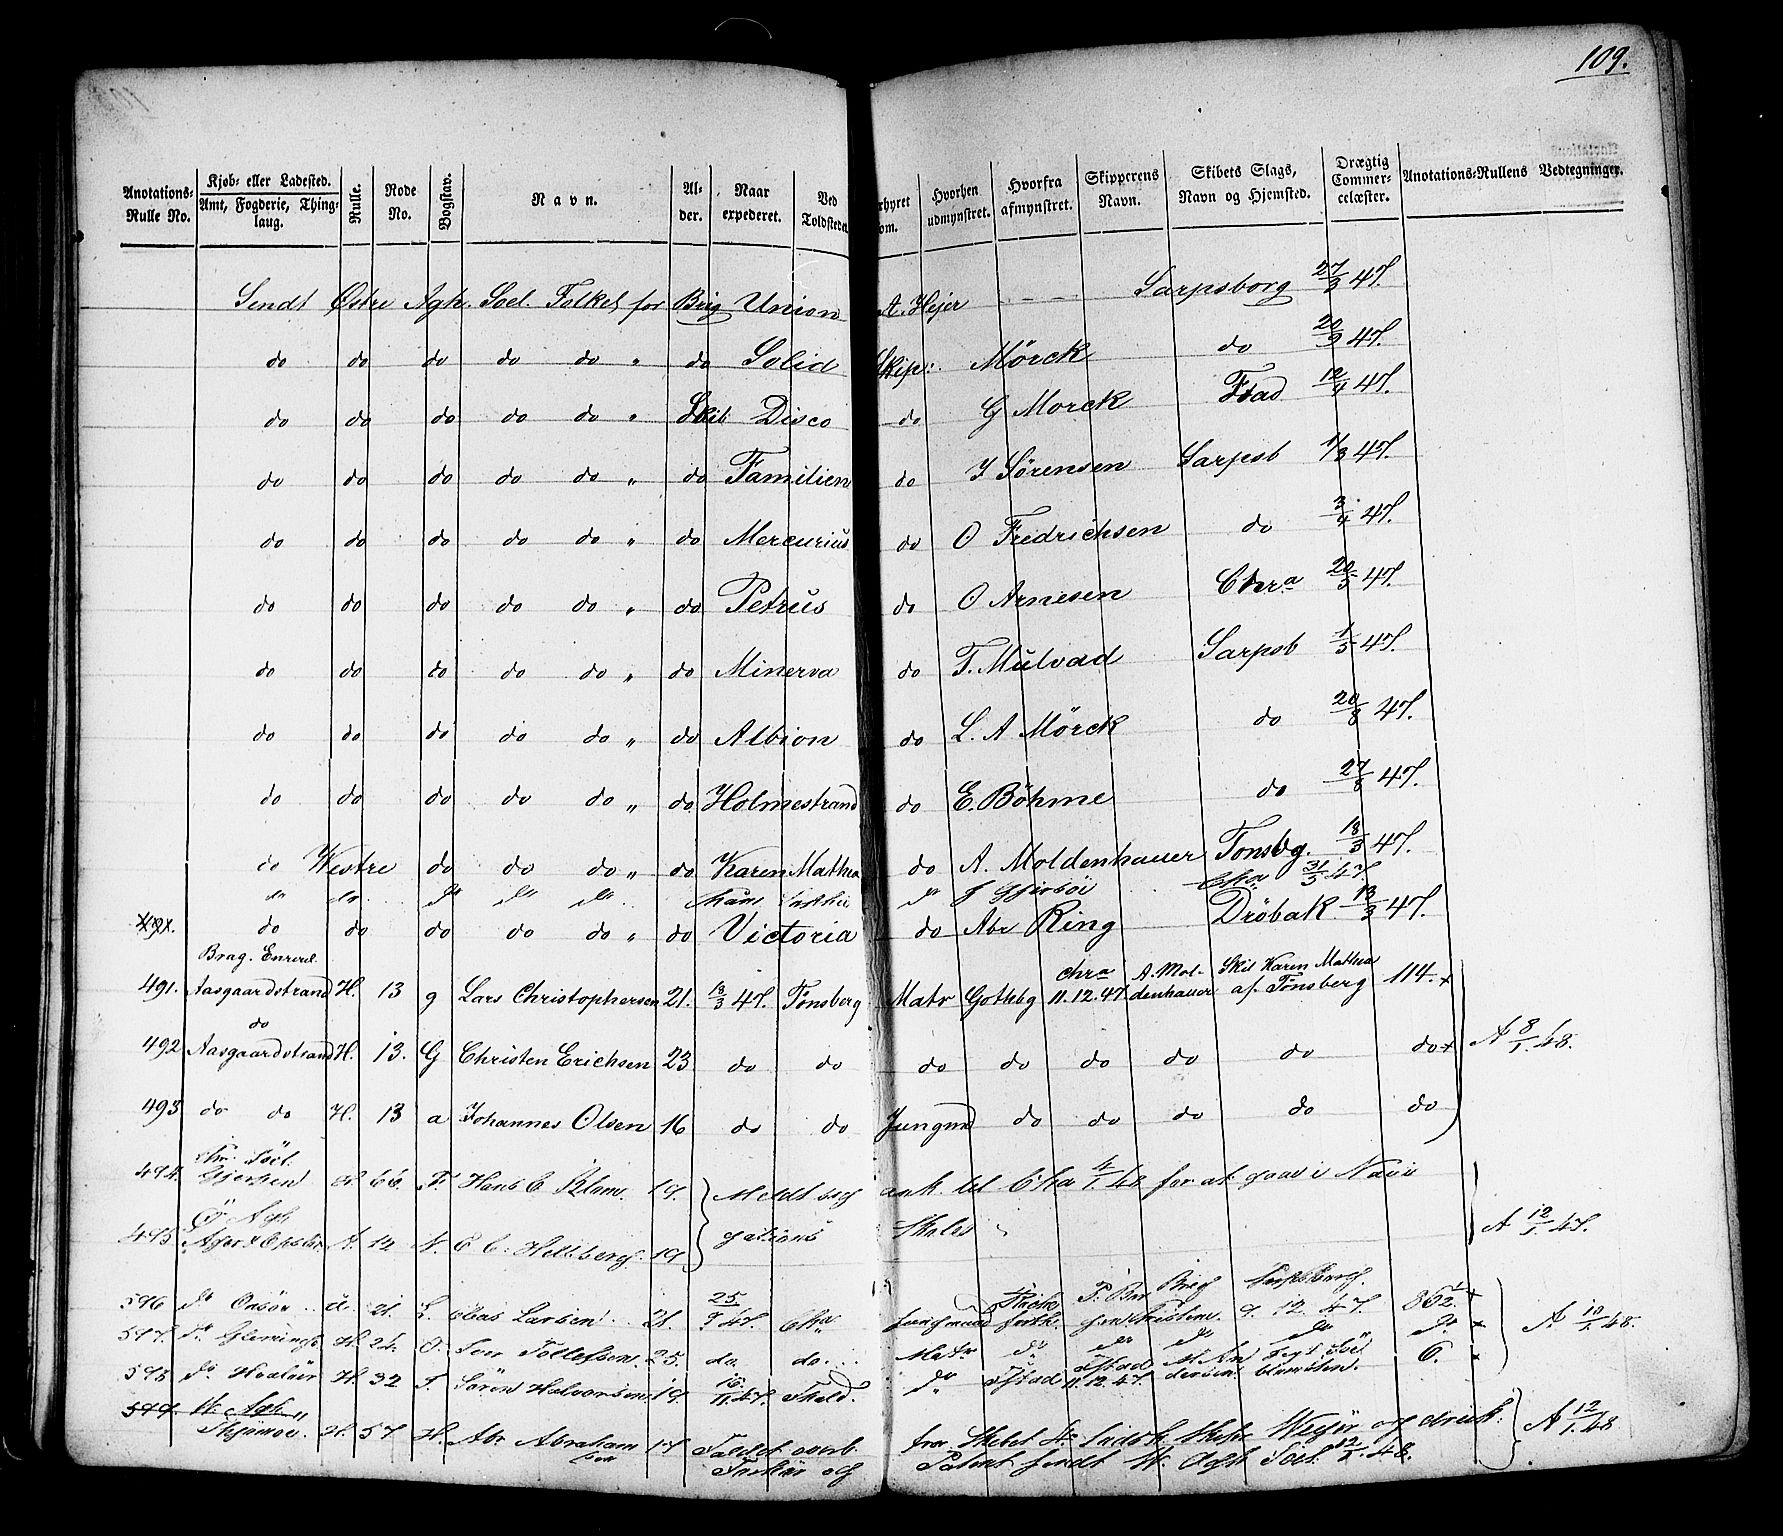 109.
Anotations-Rulle No. Kjøb- eller Ladested. Amt, Fogderie, Thinglaug. Rulle. Rode No. Bogstav. Navn. Alder. Naar expederet. Ved Toldstedet Hvorhen udmynstret. Hvorfra afmynstret. Skipperens Navn. Skibets Slags, Navn og Hjemsted. Drægtig Commercelæster. Anotations-Rullens Vedtegninger.
Sendt Østre Agh. Soel. Folket for Brig Union A. Hejer Sarpsborg 27/3 47.
do do do do do " do Solid Skip: Mörck do 20/9 47.
do do do do do " Skib Disco do G Morck Fstad 12/4 47.
do do do do do " do Familien do J Sørensen Sarpsb 1/3 47.
do do do do do " do Mercurius do O Fredrichsen do 3/4 47.
do do do do do " do Petrus do O Arnesen Chra 20/5 47.
do do do do do " do Minerva do T. Mulvad Sarpsb 1/5 47.
do do do do do " do Albion do L. A Mörck do 20/8 47.
do do do do do " do Holmestrand do E. Böhme do 27/8 47.
do Westre do do do " do Karen Mathea do A. Moldenhauer Tonsbg. 18/3 47.
do do do do do do Chra 31/3 47.
491. do do do do do " do Victoria do Abr Ring Dröbak 13/3 47.
491. Brag. Enroul. Aasgaardstrand H. 13 g Lars Christophersen 21. 13/3 47. Tönsberg Matr Gothbg chra 11.12.47 A. Moldenhauer Skib Karen Mathea af Tönsberg 114. +
492 do Aasgaardstrand H. 13. G Christen Erichsen 23 do do do do do do do do + A 8/1.48.
493 do do H. 13 a Johannes Olsen 16 do do Jungmd do do do do do
494. 66. F. Hans C Klom. 19. Meldt sig ank. til Chra 4/1.48 for at gaae i Navi
495 Ö Agh N. C. C. Hellberg. 19 Skoles A 12/1.47.
596 do Onsöe 21. L. Larsen 21. 25/9 47 Chra Jungmand P. Brig Sarpsborg. 9.12.47 862. + A 10/1.48.
597. do H. 24. O. Tollefsen 25. do. do. Matr do do do do do +
598 do Hvalöer H. 32 T. Sören Halvorsen 19. 16/11.47. do Fstad Fstad 11.12.47. 6.
599. W. Agh " H. 57 H. Abr Abrahamsen 17 og
Patent sendt W. Agh Soel. 12/1.48. A 12/1.48